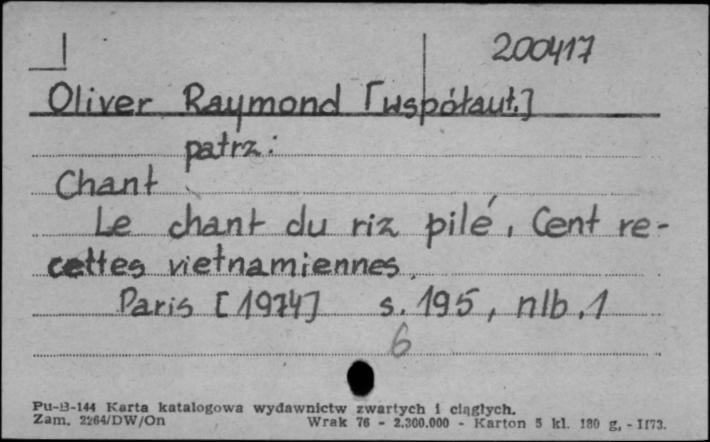 200417
Oliver Raymond [współaut.]
patrz:
Chant
Le chant du riz pilé, Cent re-
cettes vietnamiennes.
Paris [1974] s. 195, nlb. 1
6
Pu-B-144 Karta katalogowa wydawnictw zwartych i ciągłych.
Zam. 2264/DW/On Wrak 76 - 2.300.000 - Karton 5 kl. 180 g, - 1173.